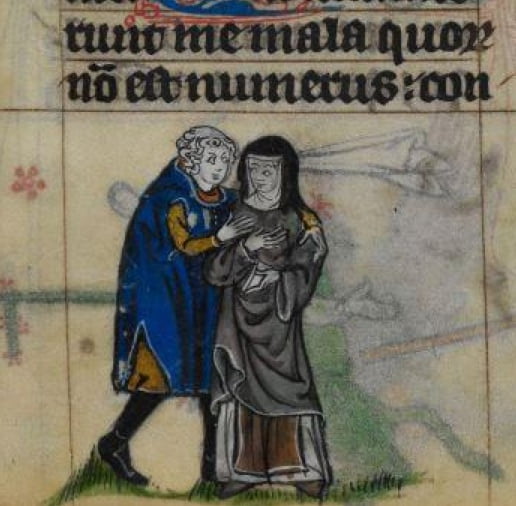 runt me mala quorꝝ
nō est numerus : con